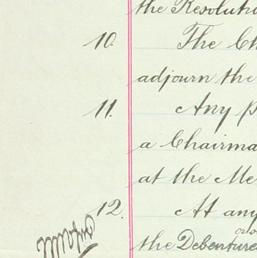 the Resolutio
10. The Ch
adjourn the
11. Any p
a Chairma
at the Me
12. At any
the Debenture